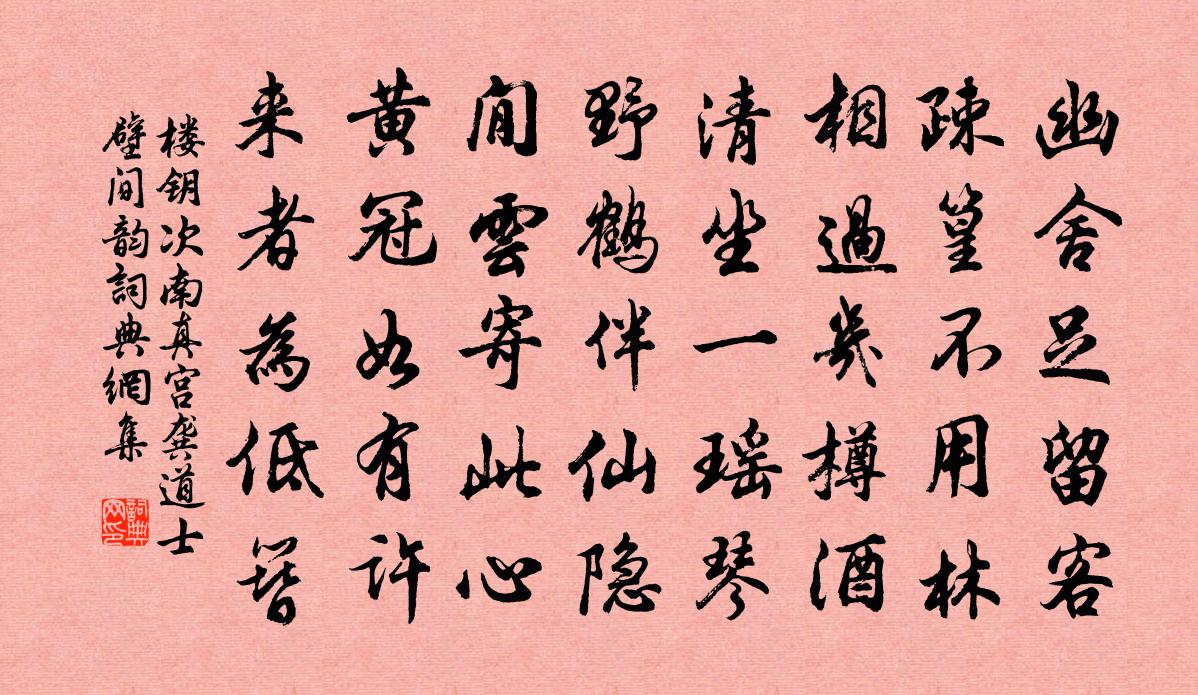 幽舍足留客
疎篁不用林
相過幾樽酒
清坐一瑶琴
野鶴伴仙隐
閒雲寄此心
黄冠如有许
来者為低簪
楼钥次南真宫龚道士
壁间韵詞典網集
詞典
网印